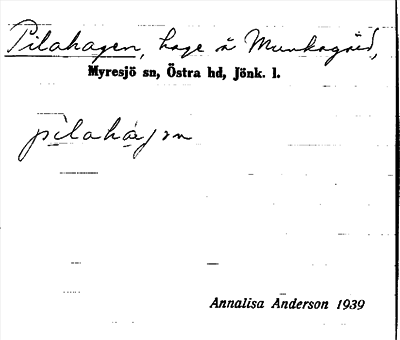 Pilahagen, hage å Munkagård,
Myresjö sn, Östra hd, Jönk. l.
Annalisa Anderson 1939